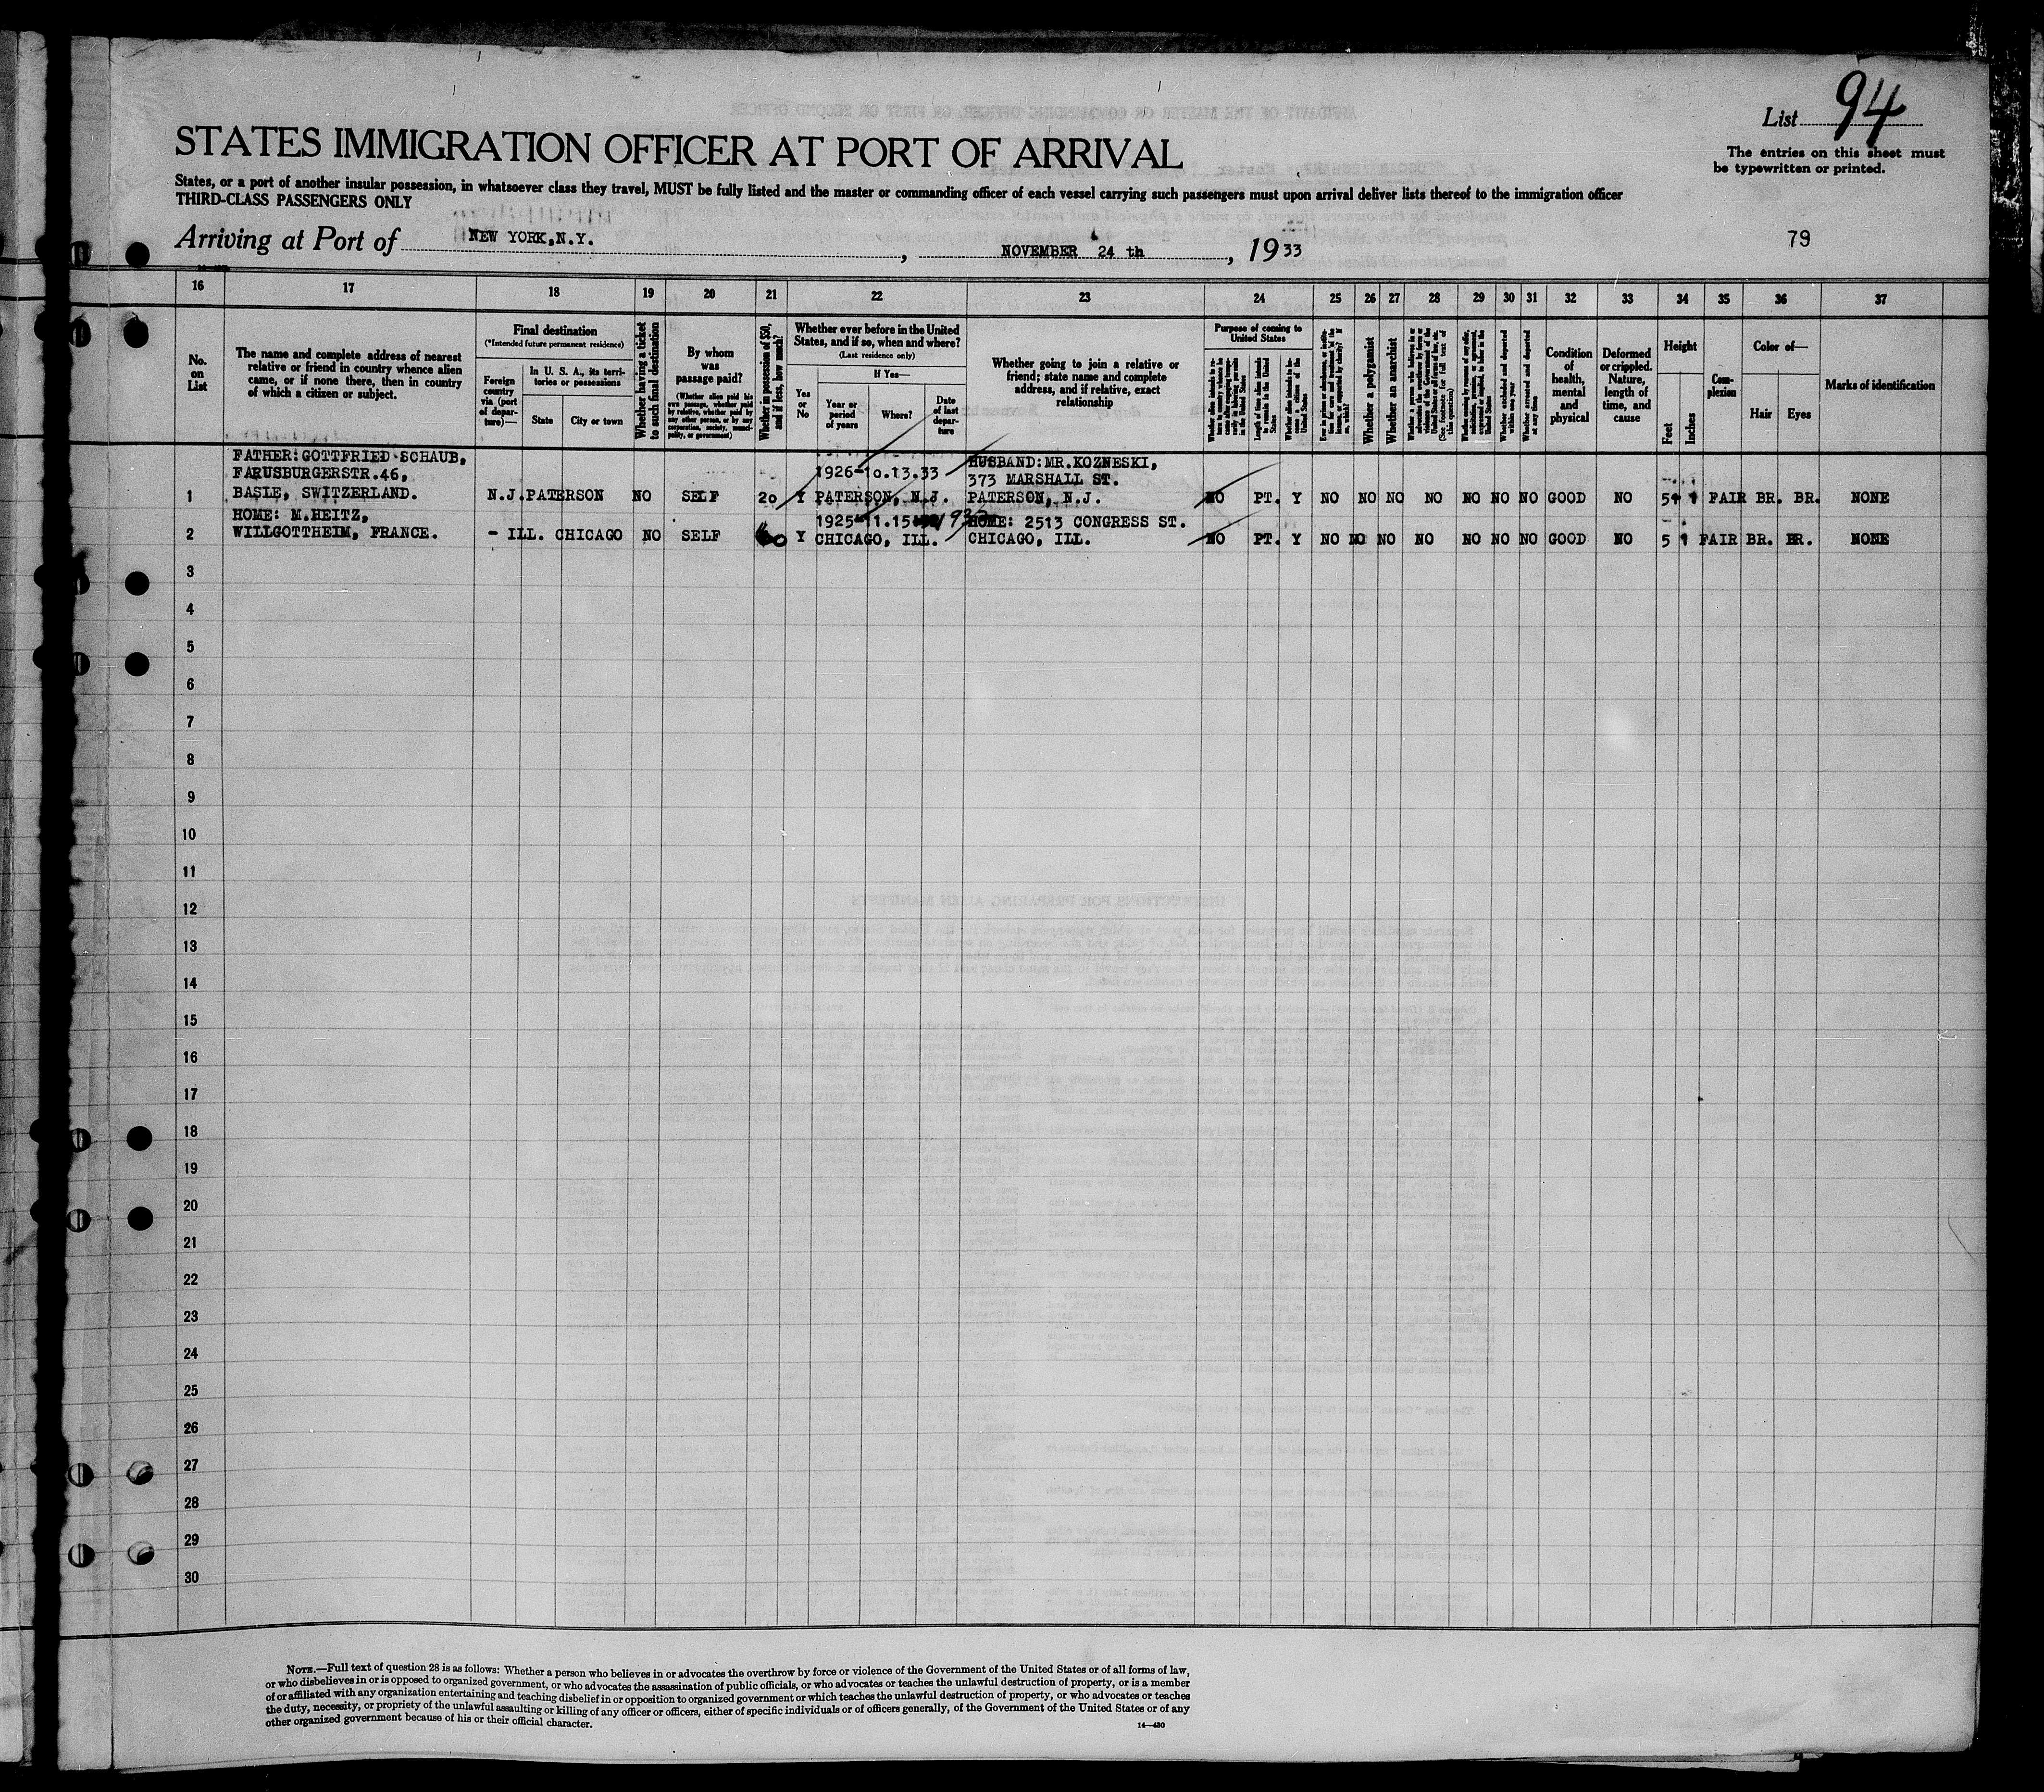 List 94
The entries on this sheet must
be typewritten or printed.
STATES IMMIGRATION OFFICER AT PORT OF ARRIVAL
States, or a port of another insular possession, in whatsoever class they travel, MUST be fully listed and the master or commanding officer of each vessel carrying such passengers must upon arrival deliver lists thereof to the immigration officer
THIRD-CLASS PASSENGERS ONLY
Arriving at Port of NEW YORK,N.Y. , NOVEMBER 24 th , 19 33
79
16 17 18 19 20 21 22 23 24 25 26 27 28 29 30 31 32 33 34 35 36 37
No.
on
List
The name and complete address of nearest
relative or friend in country whence alien
came, or if none there, then in country
of which a citizen or subject.
Final destination
(*Intended future permanent residence)
Foreign
country
via (port
of depar-
ture)—
In U. S. A., its terri-
tories or possessions
State
City or town
Whether having a ticket
to such final destination
By whom
was
passage paid?
(Whether alien paid his
own passage, whether paid
by relative, whether paid by
any other person, or by any
corporation, society, munici-
pality, or government)
Whether in possession of $50,
and if less, how much?
Whether ever before in the United
States, and if so, when and where?
(Last residence only)
Yes
or
No
If Yes—
Year or
period
of years
Where?
Date
of last
depar-
ture
Whether going to join a relative or
friend; state name and complete
address, and if relative, exact
relationship
Purpose of coming to
United States
Length of time alien intends
to remain in the United
States
Whether alien intends to be-
come a citizen of the
United States
Whether a polygamist
Whether an anarchist
Whether arrested and deported
at any time
Condition
of
health,
mental
and
physical
Deformed
or crippled.
Nature,
length of
time, and
cause
Height
Feet
Inches
Com-
plexion
Color of—
Hair
Eyes
Marks of identification
FATHER:GOTTFRIED SCHAUB,
FARUSBURGERSTR.46,
1 BASLE, SWITZERLAND. N.J. PATERSON NO SELF 20 Y PATERSON, N.J. PATERSON, N.J. NO PT. Y NO NO NO NO NO NO NO GOOD NO 5 FAIR BR. BR. NONE
1926-10.13.33 HUSBAND:MR.KOZNESKI,
373 MARSHALL ST.
HOME: M.HEITZ, 1925-11.15 193 HOME: 2513 CONGRESS ST.
2 WILLGOTTHEIM, FRANCE. - ILL. CHICAGO NO SELF 60 Y CHICAGO, ILL. CHICAGO, ILL. NO PT. Y NO NO NO NO NO NO NO GOOD NO 5 FAIR BR. BR. NONE
3
4
5
6
7
8
9
10
11
12
13
14
15
16
17
18
19
20
21
22
23
24
25
26
27
28
29
30
NOTE.—Full text of question 28 is as follows: Whether a person who believes in or advocates the overthrow by force or violence of the Government of the United States or of all forms of law,
or who disbelieves in or is opposed to organized government, or who advocates the assassination of public officials, or who advocates or teaches the unlawful destruction of property, or is a member
of or affiliated with any organization entertaining and teaching disbelief in or opposition to organized government or which teaches the unlawful destruction of property, or who advocates or teaches
the duty, necessity, or propriety of the unlawful assaulting or killing of any officer or officers, either of specific individuals or of officers generally, of the Government of the United States or of any
other organized government because of his or their official character.
14—430